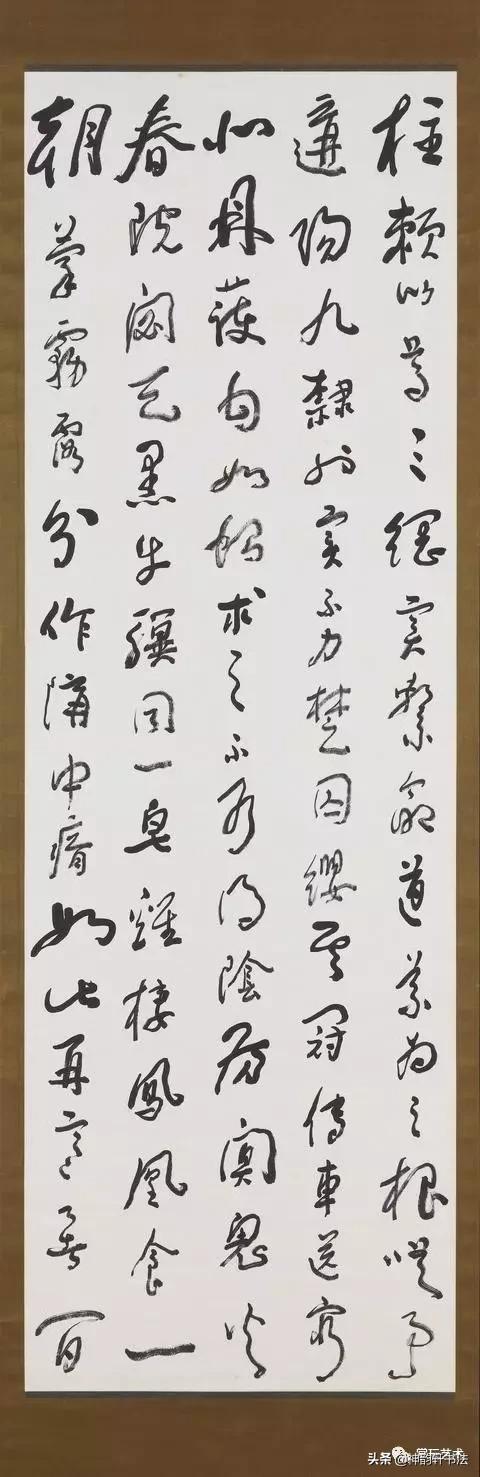 柱賴以尊三綱實繫命道義為之根嗟予
遘陽九隸也實不力楚囚纓其冠傳車送窮
北鼎鑊甘如飴求之不可得陰房闃鬼火
春院閟天黑牛驥同一皂雞棲鳳凰食一
朝蒙霧露分作溝中瘠如此再寒暑百
头条 @神韵轩书法